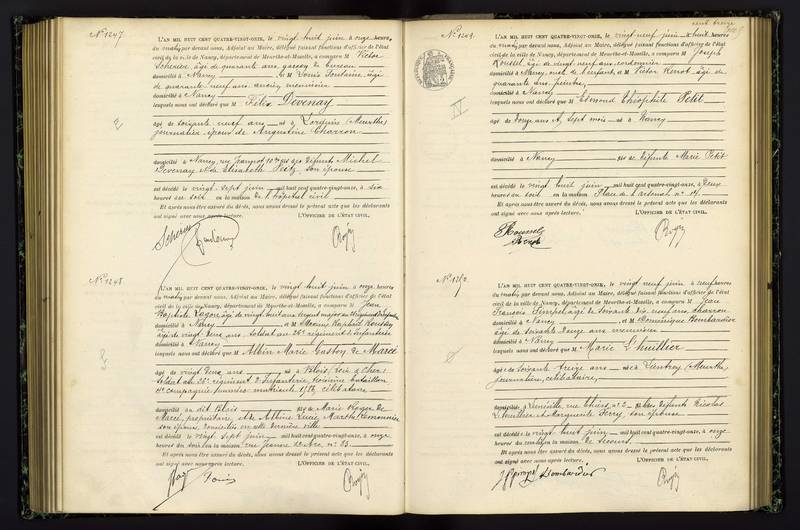 N° 1247
L'AN MIL HUIT CENT QUATRE-VINGT-ONZE, le vingt huit juin à onze heures
du matin, par devant nous, Adjoint au Maire, délégué faisant fonctions d'officier de l'état
civil de la ville de Nancy, département de Meurthe-et-Moselle, a comparu M Victor
Scherrer, âgé de quarante ans, garçon de bureau
domicilié à Nancy et M Louis Fontaine, âgé
de quarante neuf ans, ancien menuisier
domicilié à Nancy
lesquels nous ont déclaré que M Felix Devenay
âgé de soixante neuf ans né à Lorquin (Meurthe)
journalier époux de Augustine Charron
domicilié à Nancy, rue Jeannot 10 fils des défunts Michel
Devenay et de Elisabeth son épouse
est décédé le vingt sept juin mil huit cent quatre-vingt-onze, à six
heures du soir en la maison de l'hôpital civil
Et après nous être assuré du décès, nous avons dressé le présent acte que les déclarants
ont signé avec nous après lecture. L'OFFICIER DE L'ÉTAT CIVIL,
N° 1248
L'AN MIL HUIT CENT QUATRE-VINGT-ONZE, le vingt huit juin à onze heures
du matin, par devant nous, Adjoint au Maire, délégué faisant fonctions d'officier de l'état
civil de la ville de Nancy, département de Meurthe-et-Moselle, a comparu M Jean
Baptiste âgé de vingt huit ans sergent major au régiment d'Infanterie
domicilié à Nancy et M Maxime Raphaël
âgé de vingt deux ans, soldat au 26e régiment d'Infanterie
domicilié à Nancy
lesquels nous ont déclaré que M Albin Marie Gaston de Marcé
âgé de vingt deux ans né à Blois (Loir & Cher)
soldat au 26e régiment d'Infanterie, troisième bataillon
4e compagnie numéro matricule célibataire
domicilié au dit Blois fils de Marie Roger de
Marcé, propriétaire, et de Albine Lucie Marthe
son épouse, domiciliés en cette dernière ville
est décédé le vingt sept juin mil huit cent quatre-vingt-onze, à onze
heures du soir en la maison rue Jeanne d'Arc n° 83
Et après nous être assuré du décès, nous avons dressé le présent acte que les déclarants
ont signé avec nous après lecture. L'OFFICIER DE L'ÉTAT CIVIL,
cent treize
N° 1249
L'AN MIL HUIT CENT QUATRE-VINGT-ONZE, le vingt neuf juin à huit heures
du matin, par devant nous, Adjoint au Maire, délégué faisant fonctions d'officier de l'état
civil de la ville de Nancy, département de Meurthe-et-Moselle, a comparu M Joseph
Roussel âgé de vingt neuf ans, cordonnier
domicilié à Nancy, oncle de l'enfant, et M Victor âgé de
quarante ans, peintre,
domicilié à Nancy
lesquels nous ont déclaré que M Edmond Théophile Petit
âgé de douze ans et sept mois né à Nancy
domicilié à Nancy fils de défunte Marie Petit
est décédé le vingt huit juin mil huit cent quatre-vingt-onze, à deux
heures du soir en la maison Place de l'arsenal n° 14
Et après nous être assuré du décès, nous avons dressé le présent acte que les déclarants
ont signé avec nous après lecture. L'OFFICIER DE L'ÉTAT CIVIL,
N° 1250
L'AN MIL HUIT CENT QUATRE-VINGT-ONZE, le vingt neuf juin à neuf heures
du matin, par devant nous, Adjoint au Maire, délégué faisant fonctions d'officier de l'état
civil de la ville de Nancy, département de Meurthe-et-Moselle, a comparu M Jean
François âgé de soixante six ans, charron
domicilié à Nancy et M Dominique Bombardier
âgé de soixante douze ans menuisier
domicilié à Nancy
lesquels nous ont déclaré que M Marie Lhuillier
âgée de soixante treize ans née à Lintrey (Meurthe)
journalière, célibataire,
domiciliée à Lunéville, rue Thiers n° 2 fille des défunts Nicolas
Lhuillier et Marguerite Ferry son épouse
est décédée le vingt huit juin mil huit cent quatre-vingt-onze, à onze
heures du matin en la maison de secours
Et après nous être assuré du décès, nous avons dressé le présent acte que les déclarants
ont signé avec nous après lecture. L'OFFICIER DE L'ÉTAT CIVIL,
Bombardier